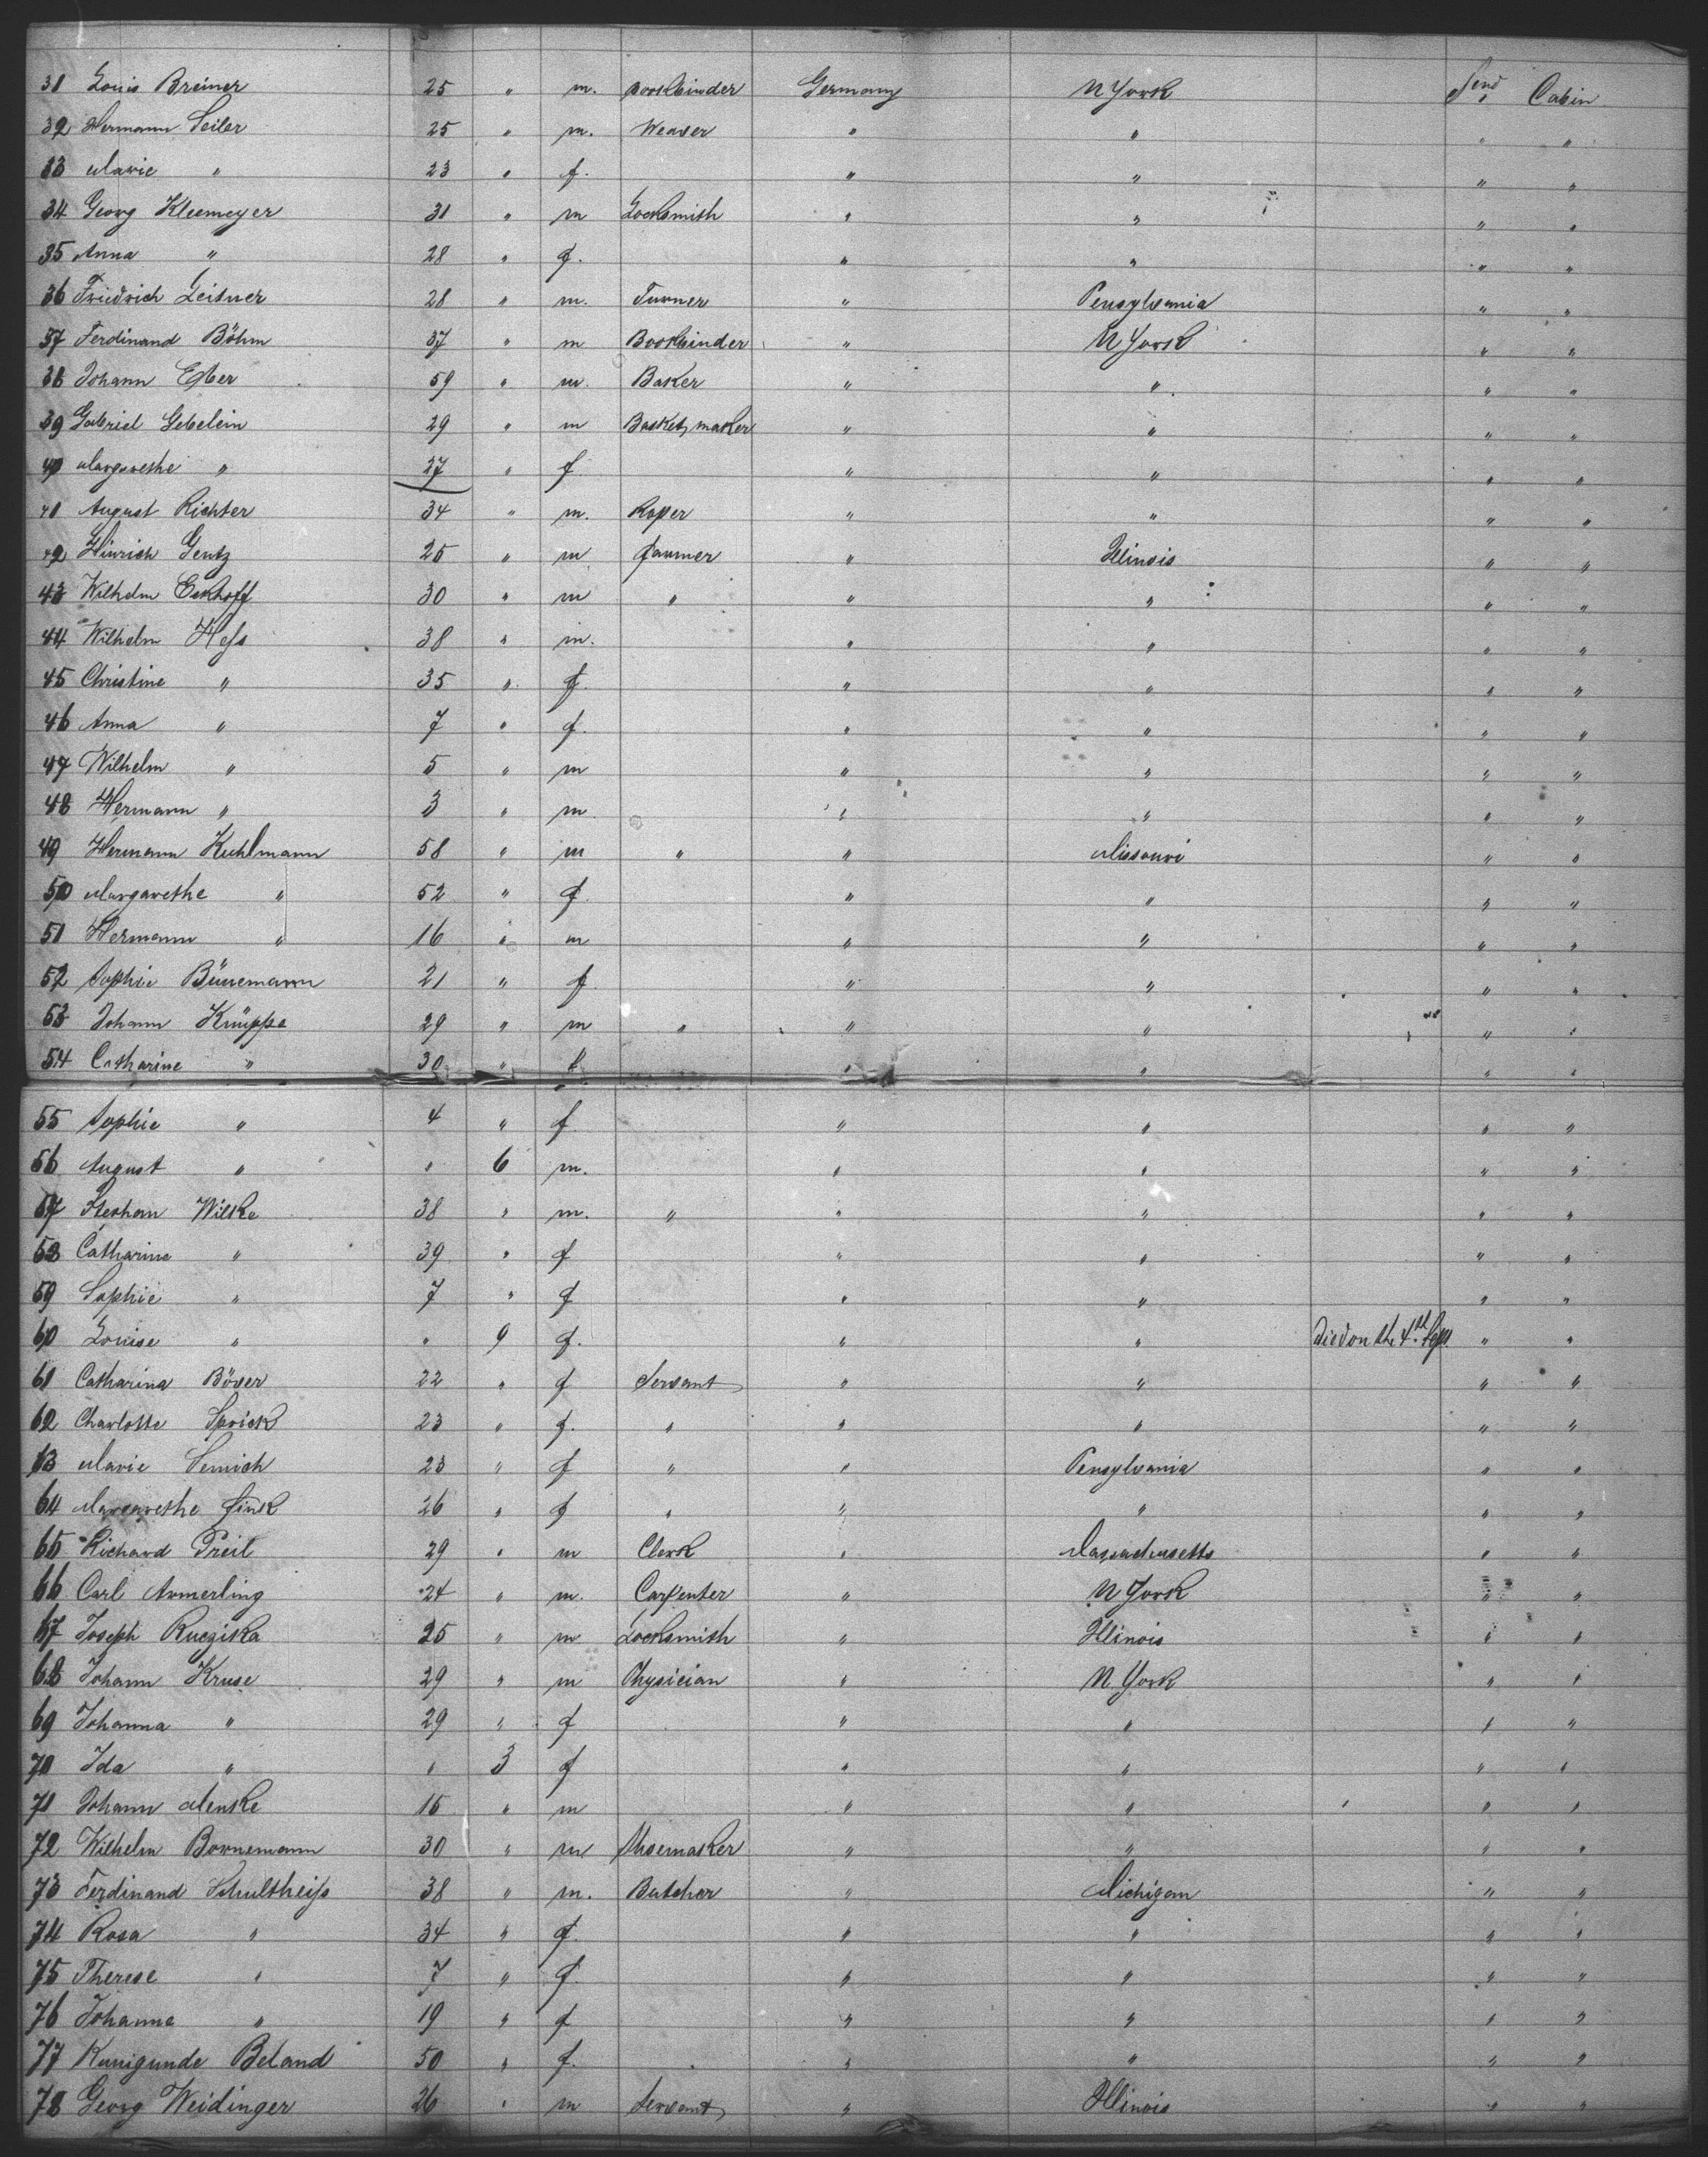 31 Louis Breiner 25 " m. Bookbinder Germany N York Send Cabin
32 Hermann Seiler 25 " m. Weaver " " " "
33 Marie " 23 " f. " " " "
34 Georg Kleemeyer 31 " m Locksmith " " " "
35 Anna " 28 " f. " " " "
36 Friedrich Leitner 28 " m. Turner " Pensylvania " "
37 Ferdinand Böhm 37 " m Bookbinder " N York " "
38 Johann Eßer 59 " m. Baker " " " "
39 Gabriel Gebelein 29 " m Basketmaker " " " "
40 Margarethe " 27 " f " " " "
41 August Richter 34 " m. Roper " " " "
42 Hinrich Gentz 25 " m farmer " Illinois " "
43 Wilhelm Eckhoff 30 " m " " " " "
44 Wilhelm Heß 38 " m. " " " "
45 Christine " 35 " f. " " " "
46 Anna " 7 " f. " " " "
47 Wilhelm " 5 " m " " " "
48 Hermann " 3 " m " " " "
49 Hermann Kuhlmann 58 " m " " Missouri " "
50 Margarethe " 52 " f. " " " "
51 Hermann " 16 " m " " " "
52 Sophie Bünemann 21 " f " " " "
53 Johann Knüppe 29 " m " " " " "
54 Catharine " 30 " f " " " "
55 Sophie " 4 " f " " " "
56 August " " 6 m. " " " "
57 Stephan Wilke 38 " m. " " " " "
58 Catharine " 39 " f " " " "
59 Sophie " 7 " f " " " "
60 Louise " " 9 f. " " Died on the 4th Sept " "
61 Catharina Böver 22 " f Servant " " " "
62 Charlotte Sprick 23 " f. " " " " "
63 Marie Semich 23 " f " " Pensylvania " "
64 Margarethe Fink 26 " f " " " " "
65 Richard Preil 29 " m Clerk " Massachusetts " "
66 Carl Ammerling 24 " m. Carpenter " N York " "
67 Joseph Ruczizka 25 " m Locksmith " Illinois " "
68 Johann Kruse 29 " m Physician " N York " "
69 Johanna " 29 " f " " " "
70 Ida " " 3 f " " " "
71 Johann Menske 15 " m " " " "
72 Wilhelm Bornemann 30 " m Shoemaker " " " "
73 Ferdinand Schultheiß 38 " m. Butcher " Michigan " "
74 Rosa " 34 " f. " " " "
75 Therese " 7 " f. " " " "
76 Johanne " 19 " f " " " "
77 Kunigunde Beland 50 " f. " " " "
78 Georg Weidinger 26 " m Servant " Illinois " "